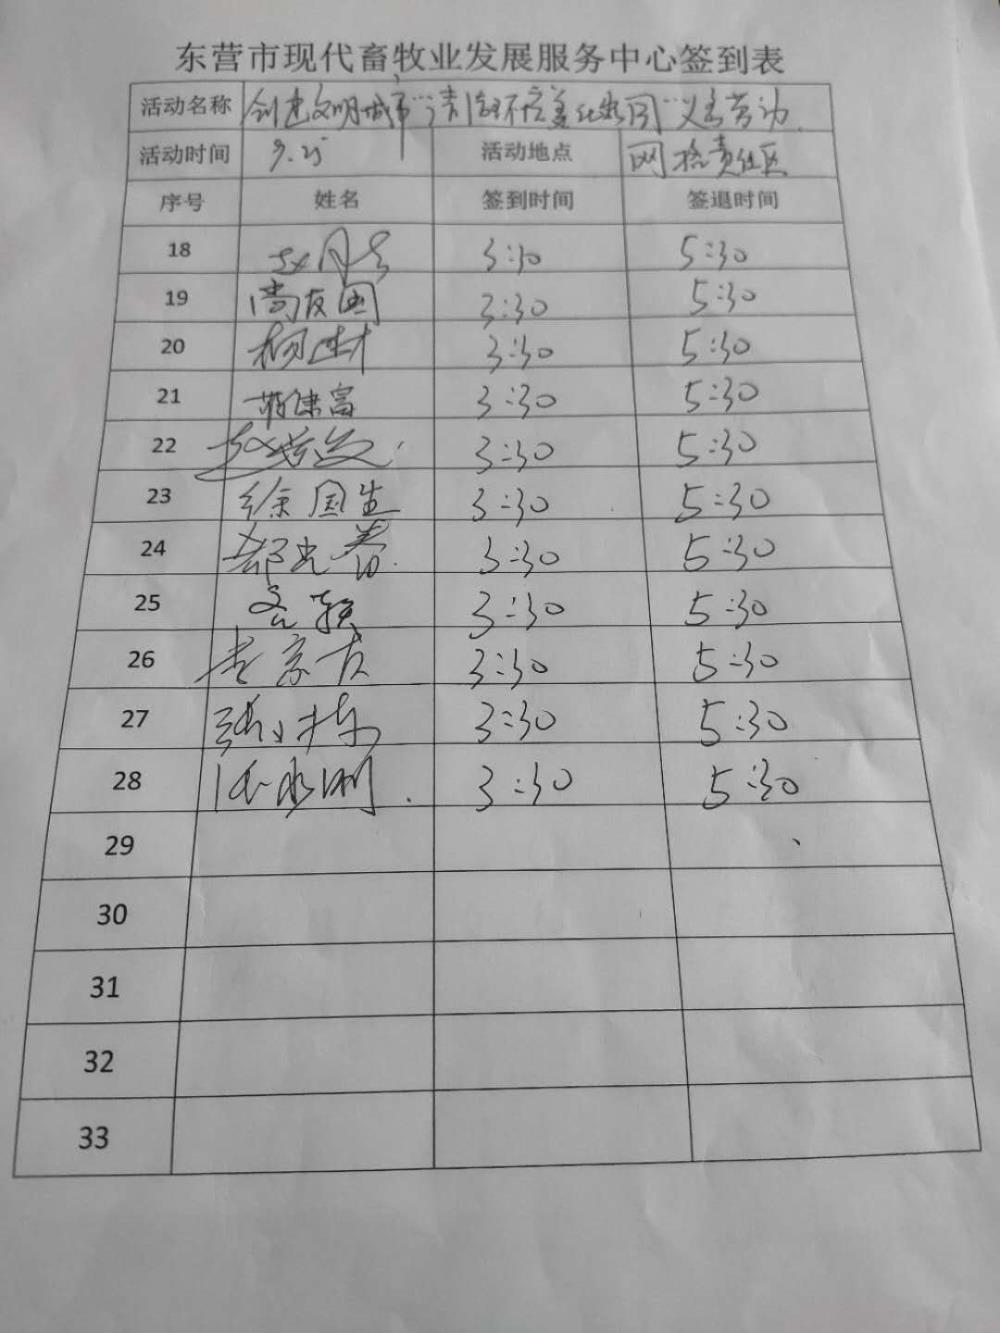 东营市现代畜牧业发展服务中心签到表
活动名称 创建文明城市"清洁环境美化家园"义务劳动
活动时间 9.25 活动地点 网格责任区
序号 姓名 签到时间 签退时间
18 3:30 5:30
19 尚友国 3:30 5:30
20 杨建村 3:30 5:30
21 健富 3:30 5:30
22 赵 3:30 5:30
23 徐国生 3:30 5:30
24 3:30 5:30
25 3:30 5:30
26 李京友 3:30 5:30
27 张小栋 3:30 5:30
28 3:30 5:30
29
30
31
32
33